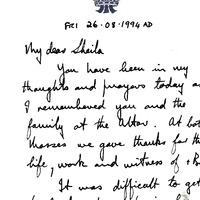 FRI 26·08·1994 AD
My dear Sheila
You have been in my
thoughts and prayers today as
I remembered you and the
family at the Altar. At both
Masses we gave thanks for the
life, work and witness of
It was difficult to get